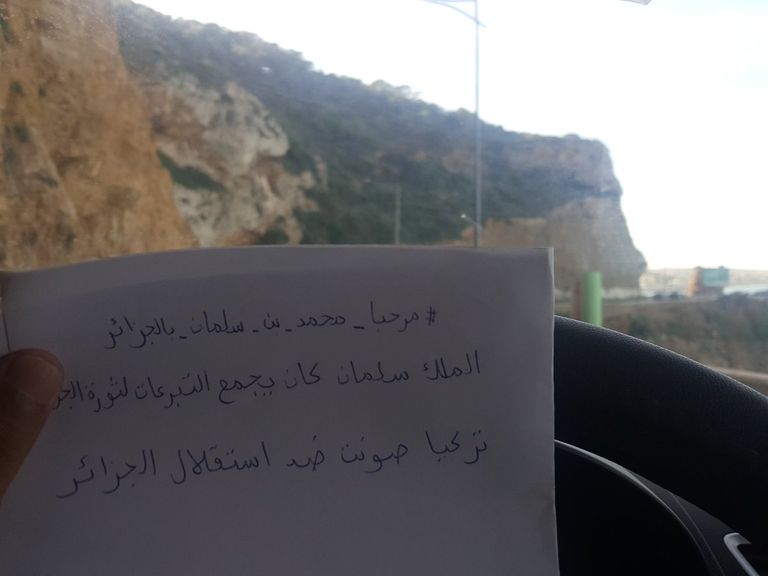 #مرحبا_محمد_بن_سلمان_بالجزائر
الملك سلمان كان يجمع التبرعات لثورة الجز
تركيا صوتت ضد استقلال الجزائر